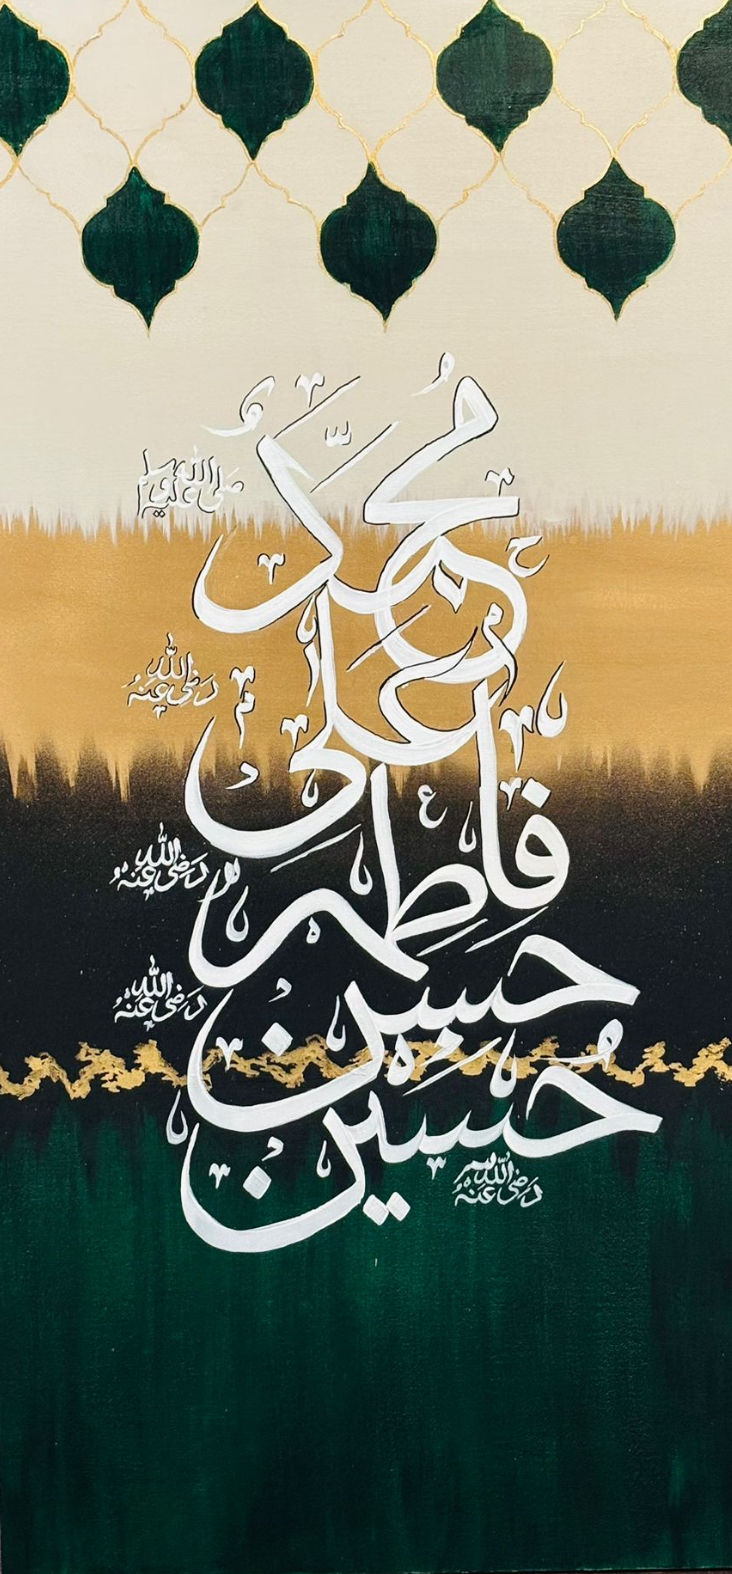 مُحَمَّدٌ
صَلَى الله عليه وسلم
عَلِي
رَضِى الله عَنهُ
فَاطِمہ
رَضِى الله عَنهُ
حسين
رَضِى الله عَنهُ
حُسين
رَضِى الله عَنهُ